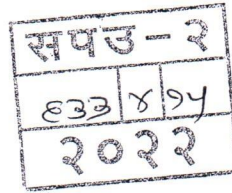 सपउ - २
६३३ ४ १५
२०२२